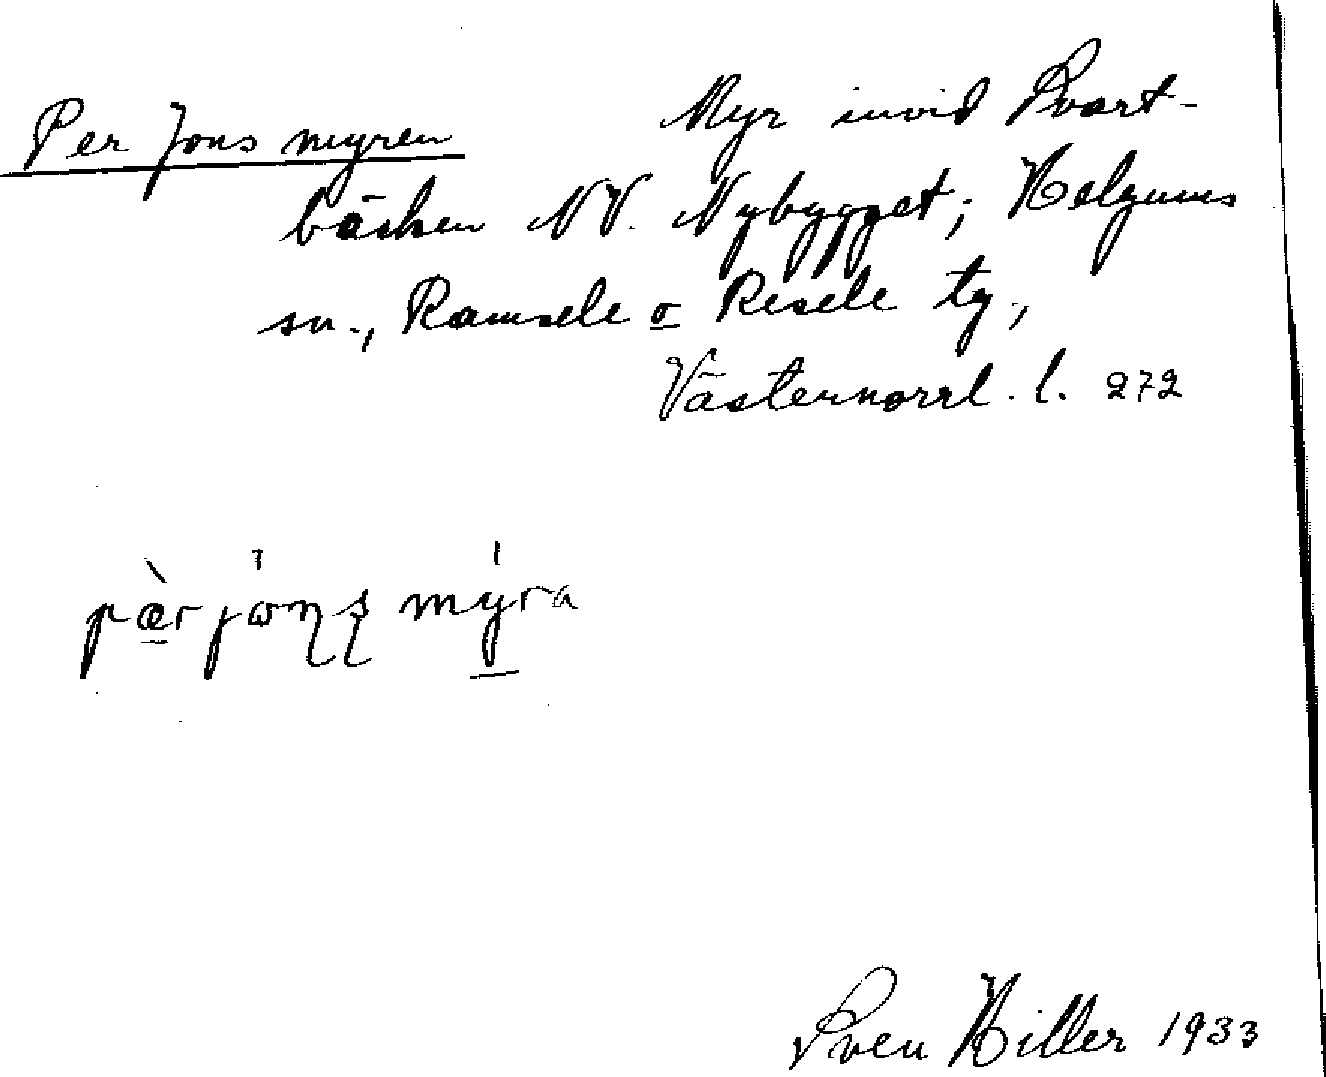 Per Jons myren Myr invid Svart-
bäcken NV. Nybygget; Helgums
sn., Ramsele o Resele tg.,
Västernorrl. l. 272
pæ̀r jɷn̢s̢ mýra
Sven Hiller 1933